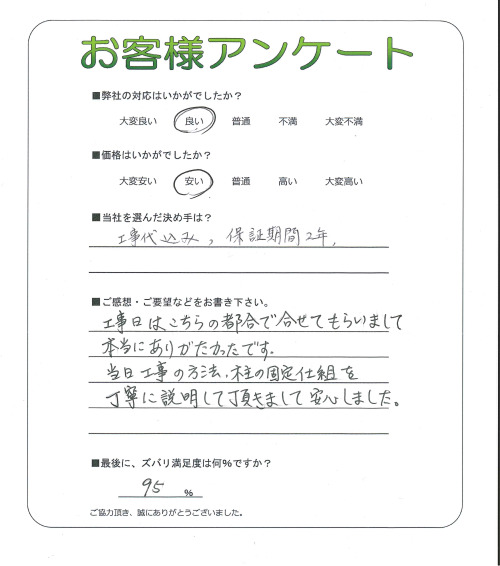 お客様アンケート
■弊社の対応はいかがでしたか？
大変良い 良い 普通 不満 大変不満
■価格はいかがでしたか？
大変安い 安い 普通 高い 大変高い
■当社を選んだ決め手は？
工事代込み, 保証期間2年,
■ご感想・ご要望などをお書き下さい。
工事日はこちらの都合で合せてもらいまして
本当にありがたかったです.
当日工事の方法、柱の固定仕組を
丁寧に説明して頂きまして安心しました。
■最後に、ズバリ満足度は何%ですか？
95 %
ご協力頂き、誠にありがとうございました。